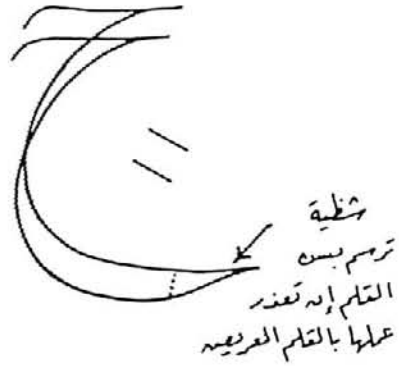 شظية
ترسم بسن
القلم إن تعذر
عملها بالقلم العريض